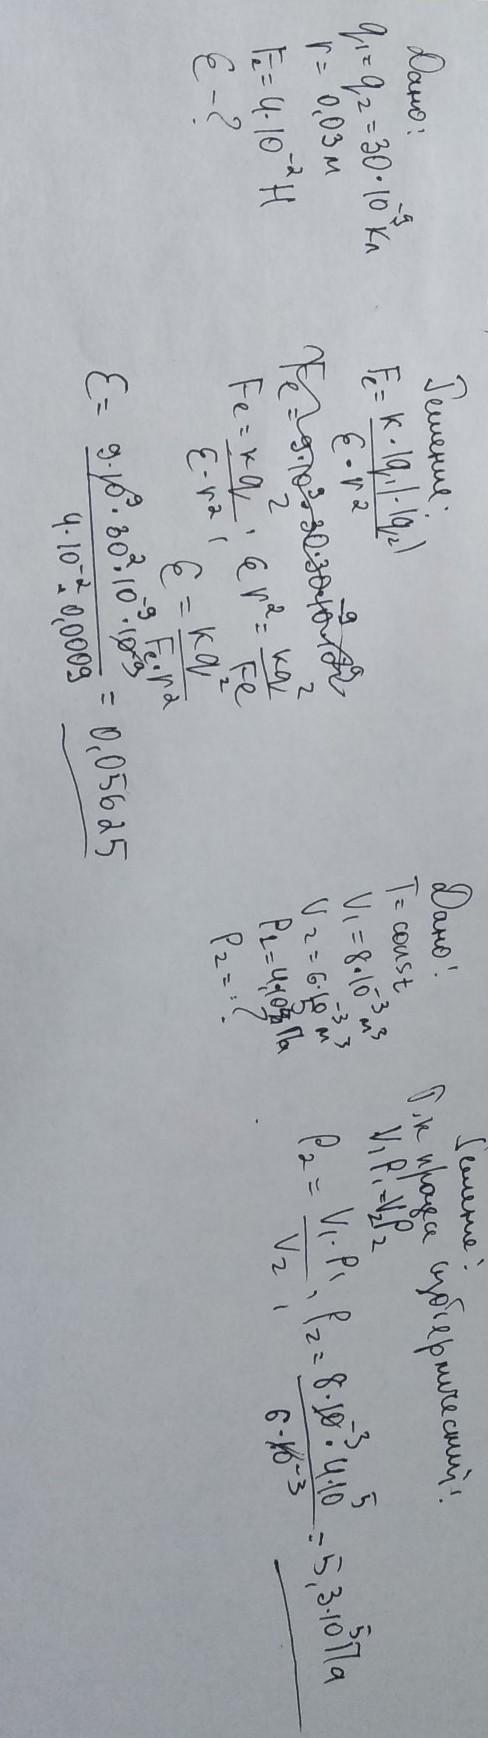 Дано:
q₁ = q₂ = 30·10⁻⁹ Кл
r = 0,03 м
F₂ = 4·10⁻² Н
ε - ?
Решение:
Fе = k·|q₁|·|q₂| / ε·r²
Fе = kq² / ε·r², εr² = kq² / Fе
ε = kq² / Fе·r²
ε = 9·10⁹·30²·10⁻⁹·10⁻⁹ / 4·10⁻²·0,0009 = 0,05625
Дано:
T = const
V₁ = 8·10⁻³ м³
V₂ = 6·10⁻³ м³
P₁ = 4·10⁵ Па
P₂ = ?
Решение:
Т.к процесс изотермический:
V₁P₁ = V₂P₂
P₂ = V₁·P₁ / V₂, P₂ = 8·10⁻³·4·10⁵ / 6·10⁻³ = 5,3·10⁵ Па